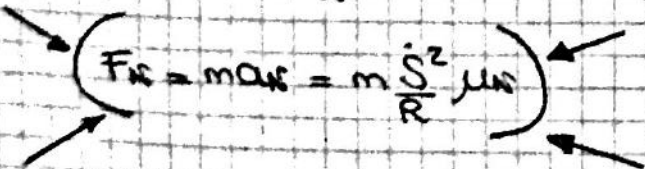 (F_N = m a_N = m Ṡ²/R μ_N)